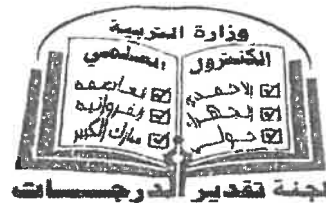 وزارة التربية
الكنترول
☑ الأحمدي
☑ الجهراء
☑ حولي
العلمي
☑ العاصمة
☑ الفروانية
☑ مبارك الكبير
لجنة تقدير الدرجات